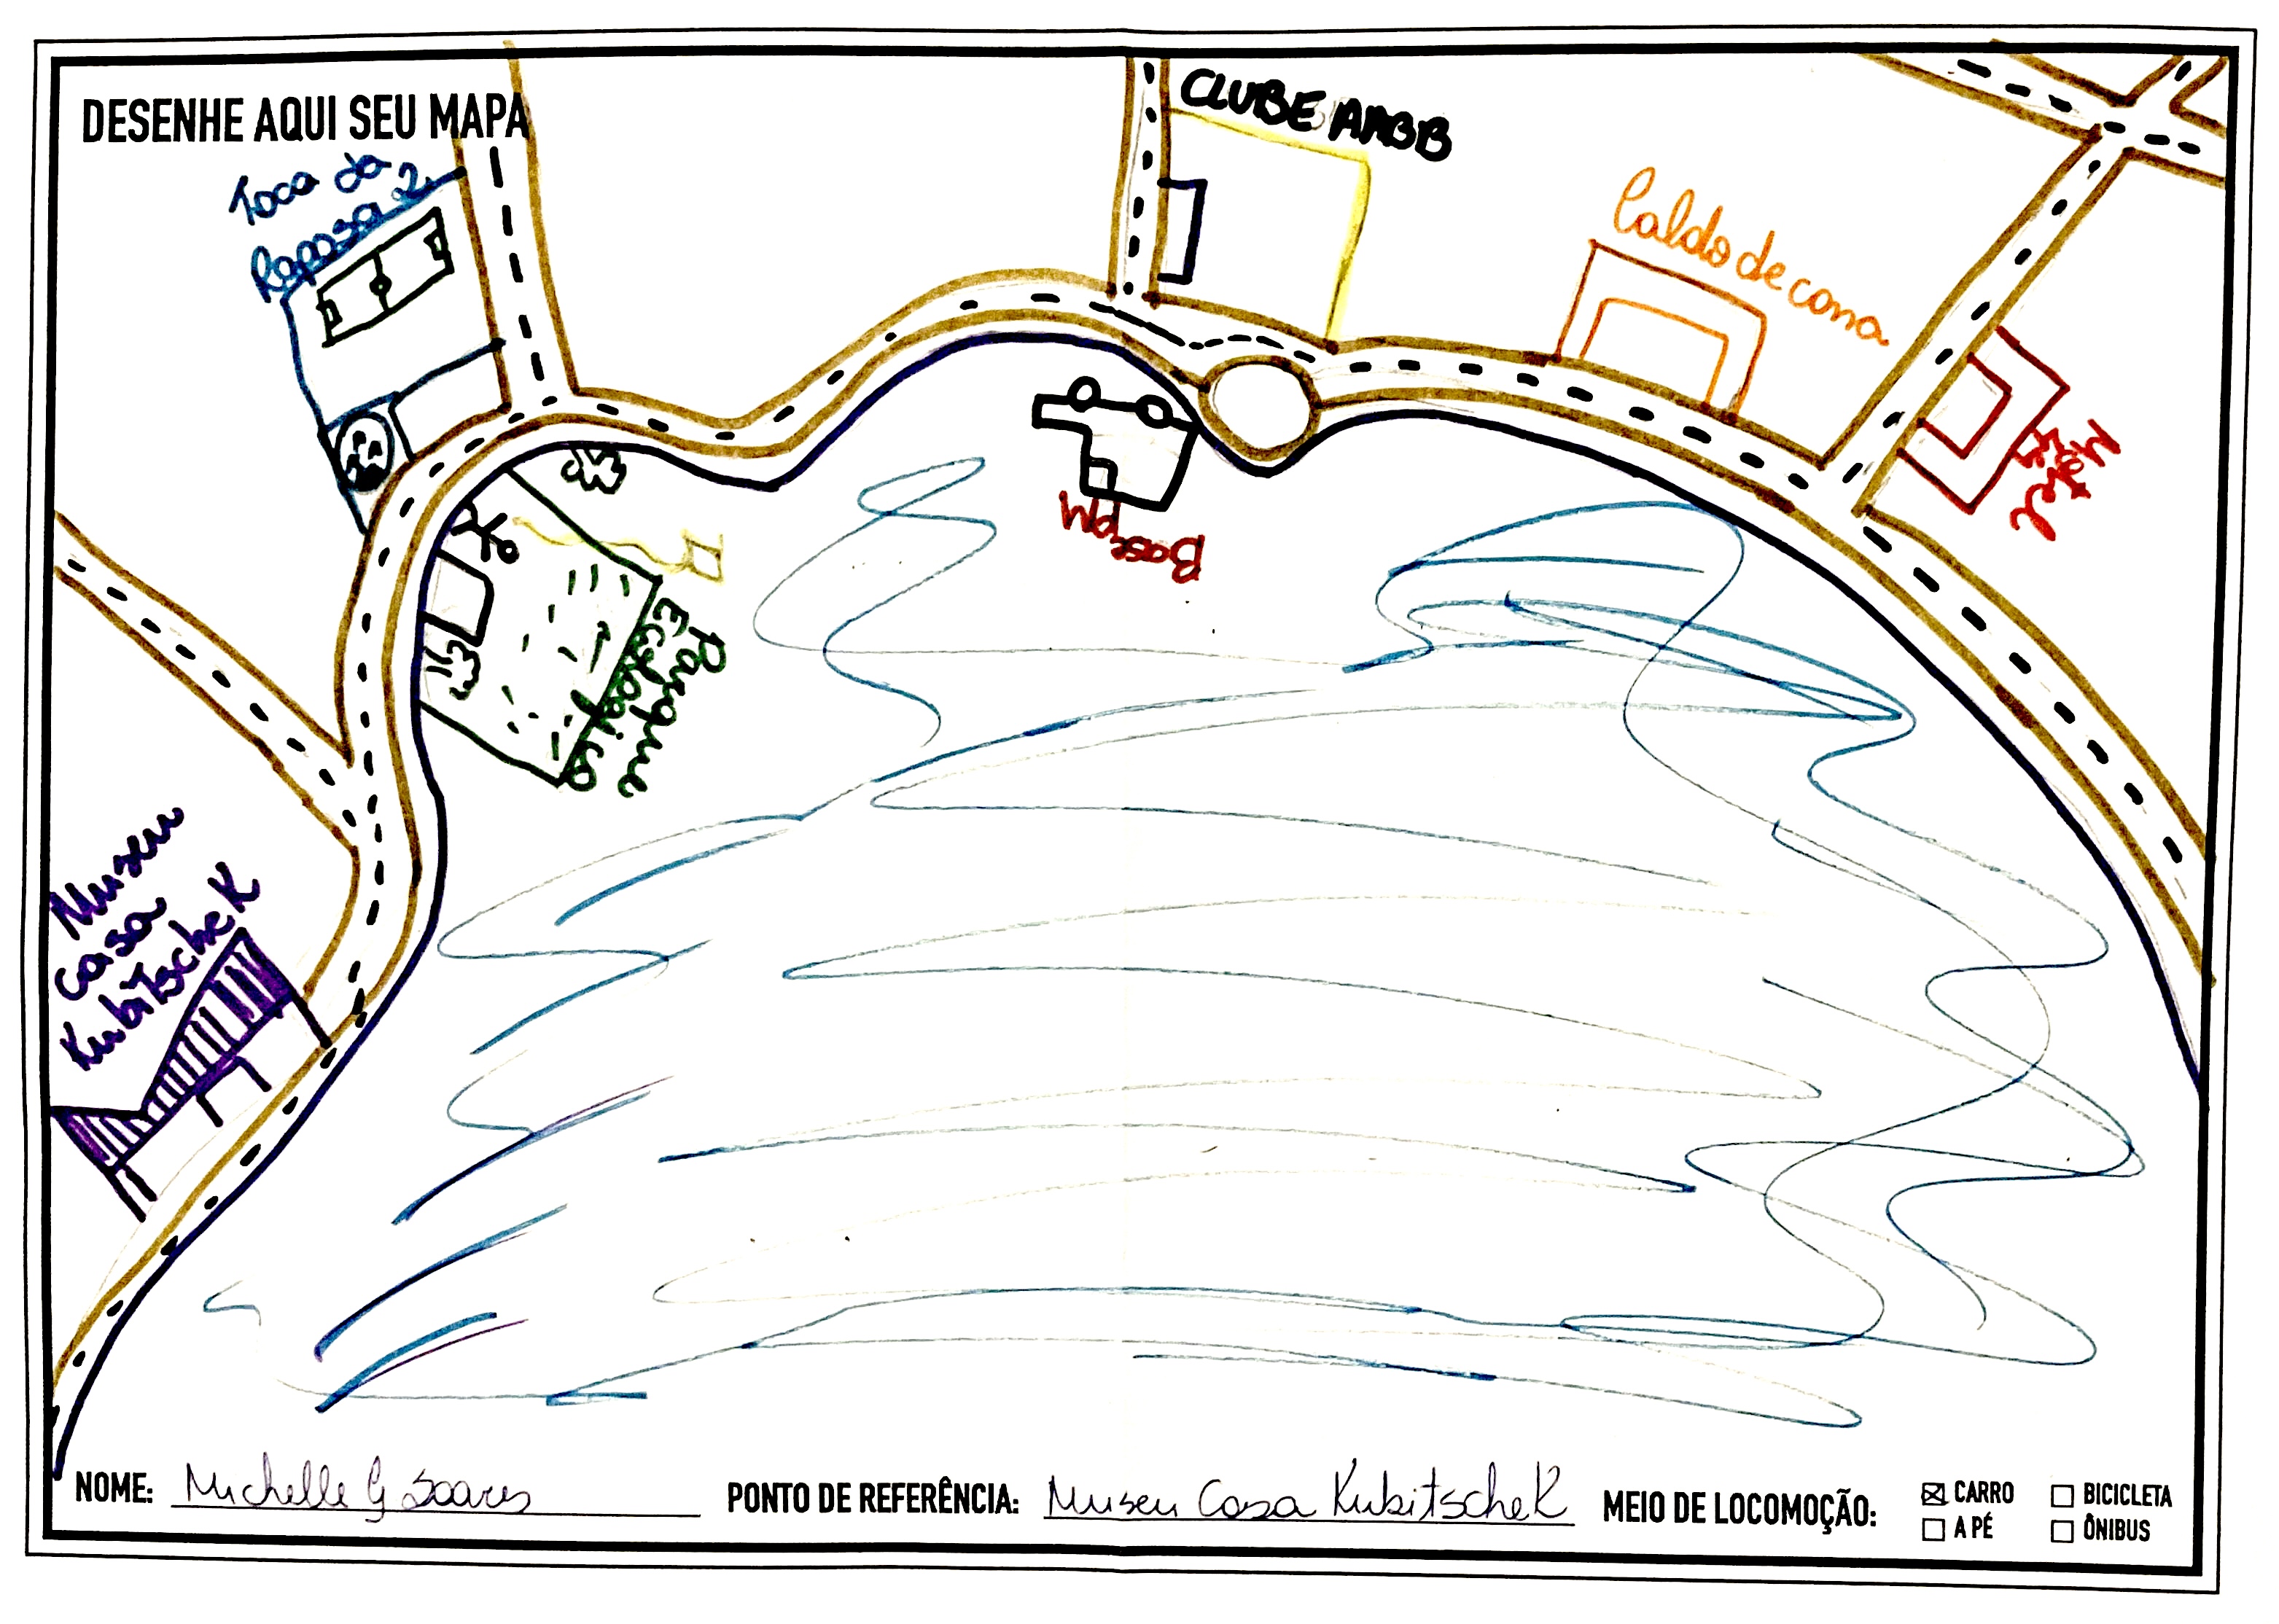 DESENHE AQUI SEU MAPA
Toca da
Raposa 2
CLUBE AABB
Caldo de cana
Motel
Base PM
Parque
Ecológico
Museu
casa
KubiTscheK
NOME: Michelle G Soares
PONTO DE REFERÊNCIA: Museu Casa KubitscheK
MEIO DE LOCOMOÇÃO:
CARRO
BICICLETA
A PÉ
ÔNIBUS